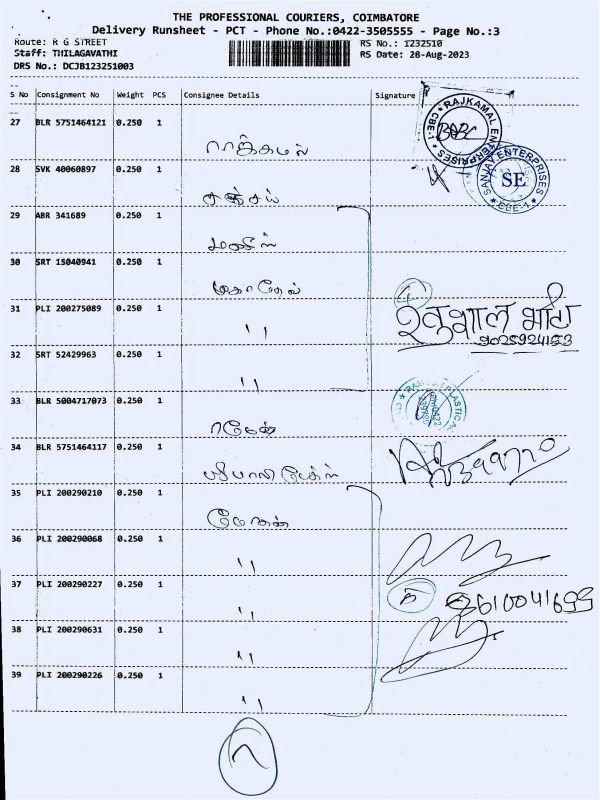 THE PROFESSIONAL COURIERS, COIMBATORE
Delivery Runsheet - PCT - Phone No.:0422-3505555 - Page No.:3
Route: R G STREET
Staff: THILAGAVATHI
DRS No.: DCJB123251003
RS No.: 1232510
RS Date: 28-Aug-2023
S No Consignment No Weight PCS Consignee Details Signature
27 BLR 5751464121 0.250 1
ராஜ்கமல்
RAJKAMAL ENTERPRISES
CBE-1
28 SVK 40060897 0.250 1
சஞ்சய்
SANJAY ENTERPRISES
SE
CBE-1
29 ABR 341689 0.250 1
30 SRT 15040941 0.250 1
மகாதேவ்
31 PLI 200275089 0.250 1
"
9025924153
32 SRT 52429963 0.250 1
"
33 BLR 5004717073 0.250 1
ரமேஷ்
34 BLR 5751464117 0.250 1
35 PLI 200290210 0.250 1
36 PLI 200290068 0.250 1
"
37 PLI 200290227 0.250 1
"
38 PLI 200290631 0.250 1
"
39 PLI 200290226 0.250 1
"